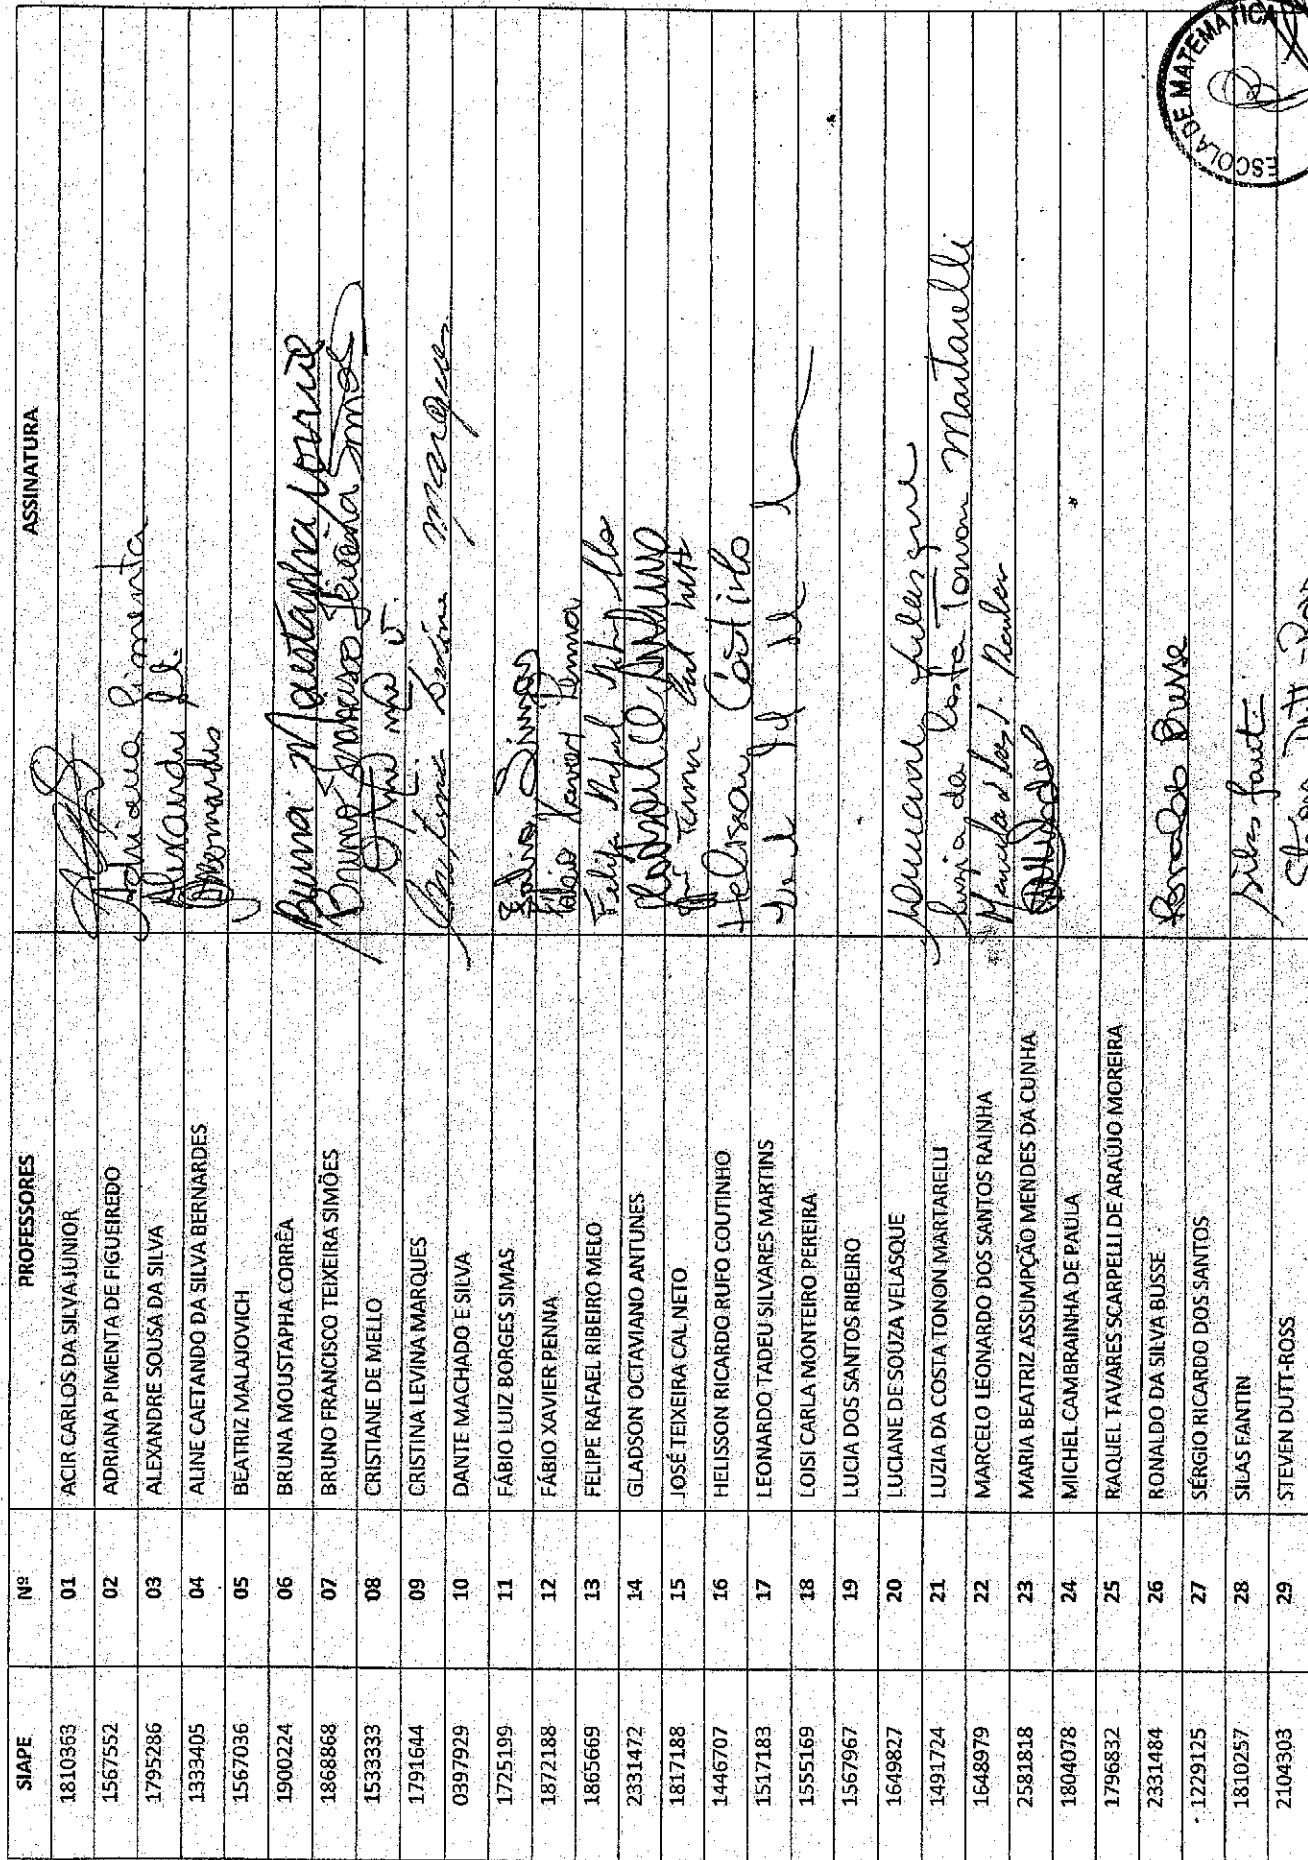 SIAPE Nº PROFESSORES ASSINATURA
1810363 01 ACIR CARLOS DA SILVA JUNIOR
1567552 02 ADRIANA PIMENTA DE FIGUEIREDO Adriana Pimenta
1795286 03 ALEXANDRE SOUSA DA SILVA Alexandre
1333405 04 ALINE CAETANDO DA SILVA BERNARDES Bernardes
1567036 05 BEATRIZ MALAJOVICH
1900224 06 BRUNA MOUSTAPHA CORRÊA Bruna Moustapha Corrêa
1868868 07 BRUNO FRANCISCO TEIXEIRA SIMÕES Bruno Francisco Teixeira Simões
1533333 08 CRISTIANE DE MELLO
1791644 09 CRISTINA LEVINA MARQUES Cristina Levina Marques
0397929 10 DANTE MACHADO E SILVA
1725199 11 FÁBIO LUIZ BORGES SIMAS Fábio Simas
1872188 12 FÁBIO XAVIER PENNA Fábio Xavier Penna
1865669 13 FELIPE RAFAEL RIBEIRO MELO Felipe Rafael Ribeiro Melo
2331472 14 GLADSON OCTAVIANO ANTUNES Gladson O. Antunes
1817188 15 JOSÉ TEIXEIRA CAL NETO José Teixeira Cal Neto
1446707 16 HELISSON RICARDO RUFO COUTINHO Helisson Coutinho
1517183 17 LEONARDO TADEU SILVARES MARTINS
1555169 18 LOISI CARLA MONTEIRO PEREIRA
1567967 19 LUCIA DOS SANTOS RIBEIRO
1649827 20 LUCIANE DE SOUZA VELASQUE Luciane Velasque
1491724 21 LUZIA DA COSTA TONON MARTARELLI Luzia da Costa Tonon Martarelli
1648979 22 MARCELO LEONARDO DOS SANTOS RAINHA
2581818 23 MARIA BEATRIZ ASSUMPÇÃO MENDES DA CUNHA
1804078 24 MICHEL CAMBRAINHA DE PAULA
1796832 25 RAQUEL TAVARES SCARPELLI DE ARAÚJO MOREIRA
2331484 26 RONALDO DA SILVA BUSSE Ronaldo Busse
1229125 27 SÉRGIO RICARDO DOS SANTOS
1810257 28 SILAS FANTIN Silas Fantin
2104303 29 STEVEN DUTT-ROSS Steven Dutt-Ross
ESCOLA DE MATEMÁTICA